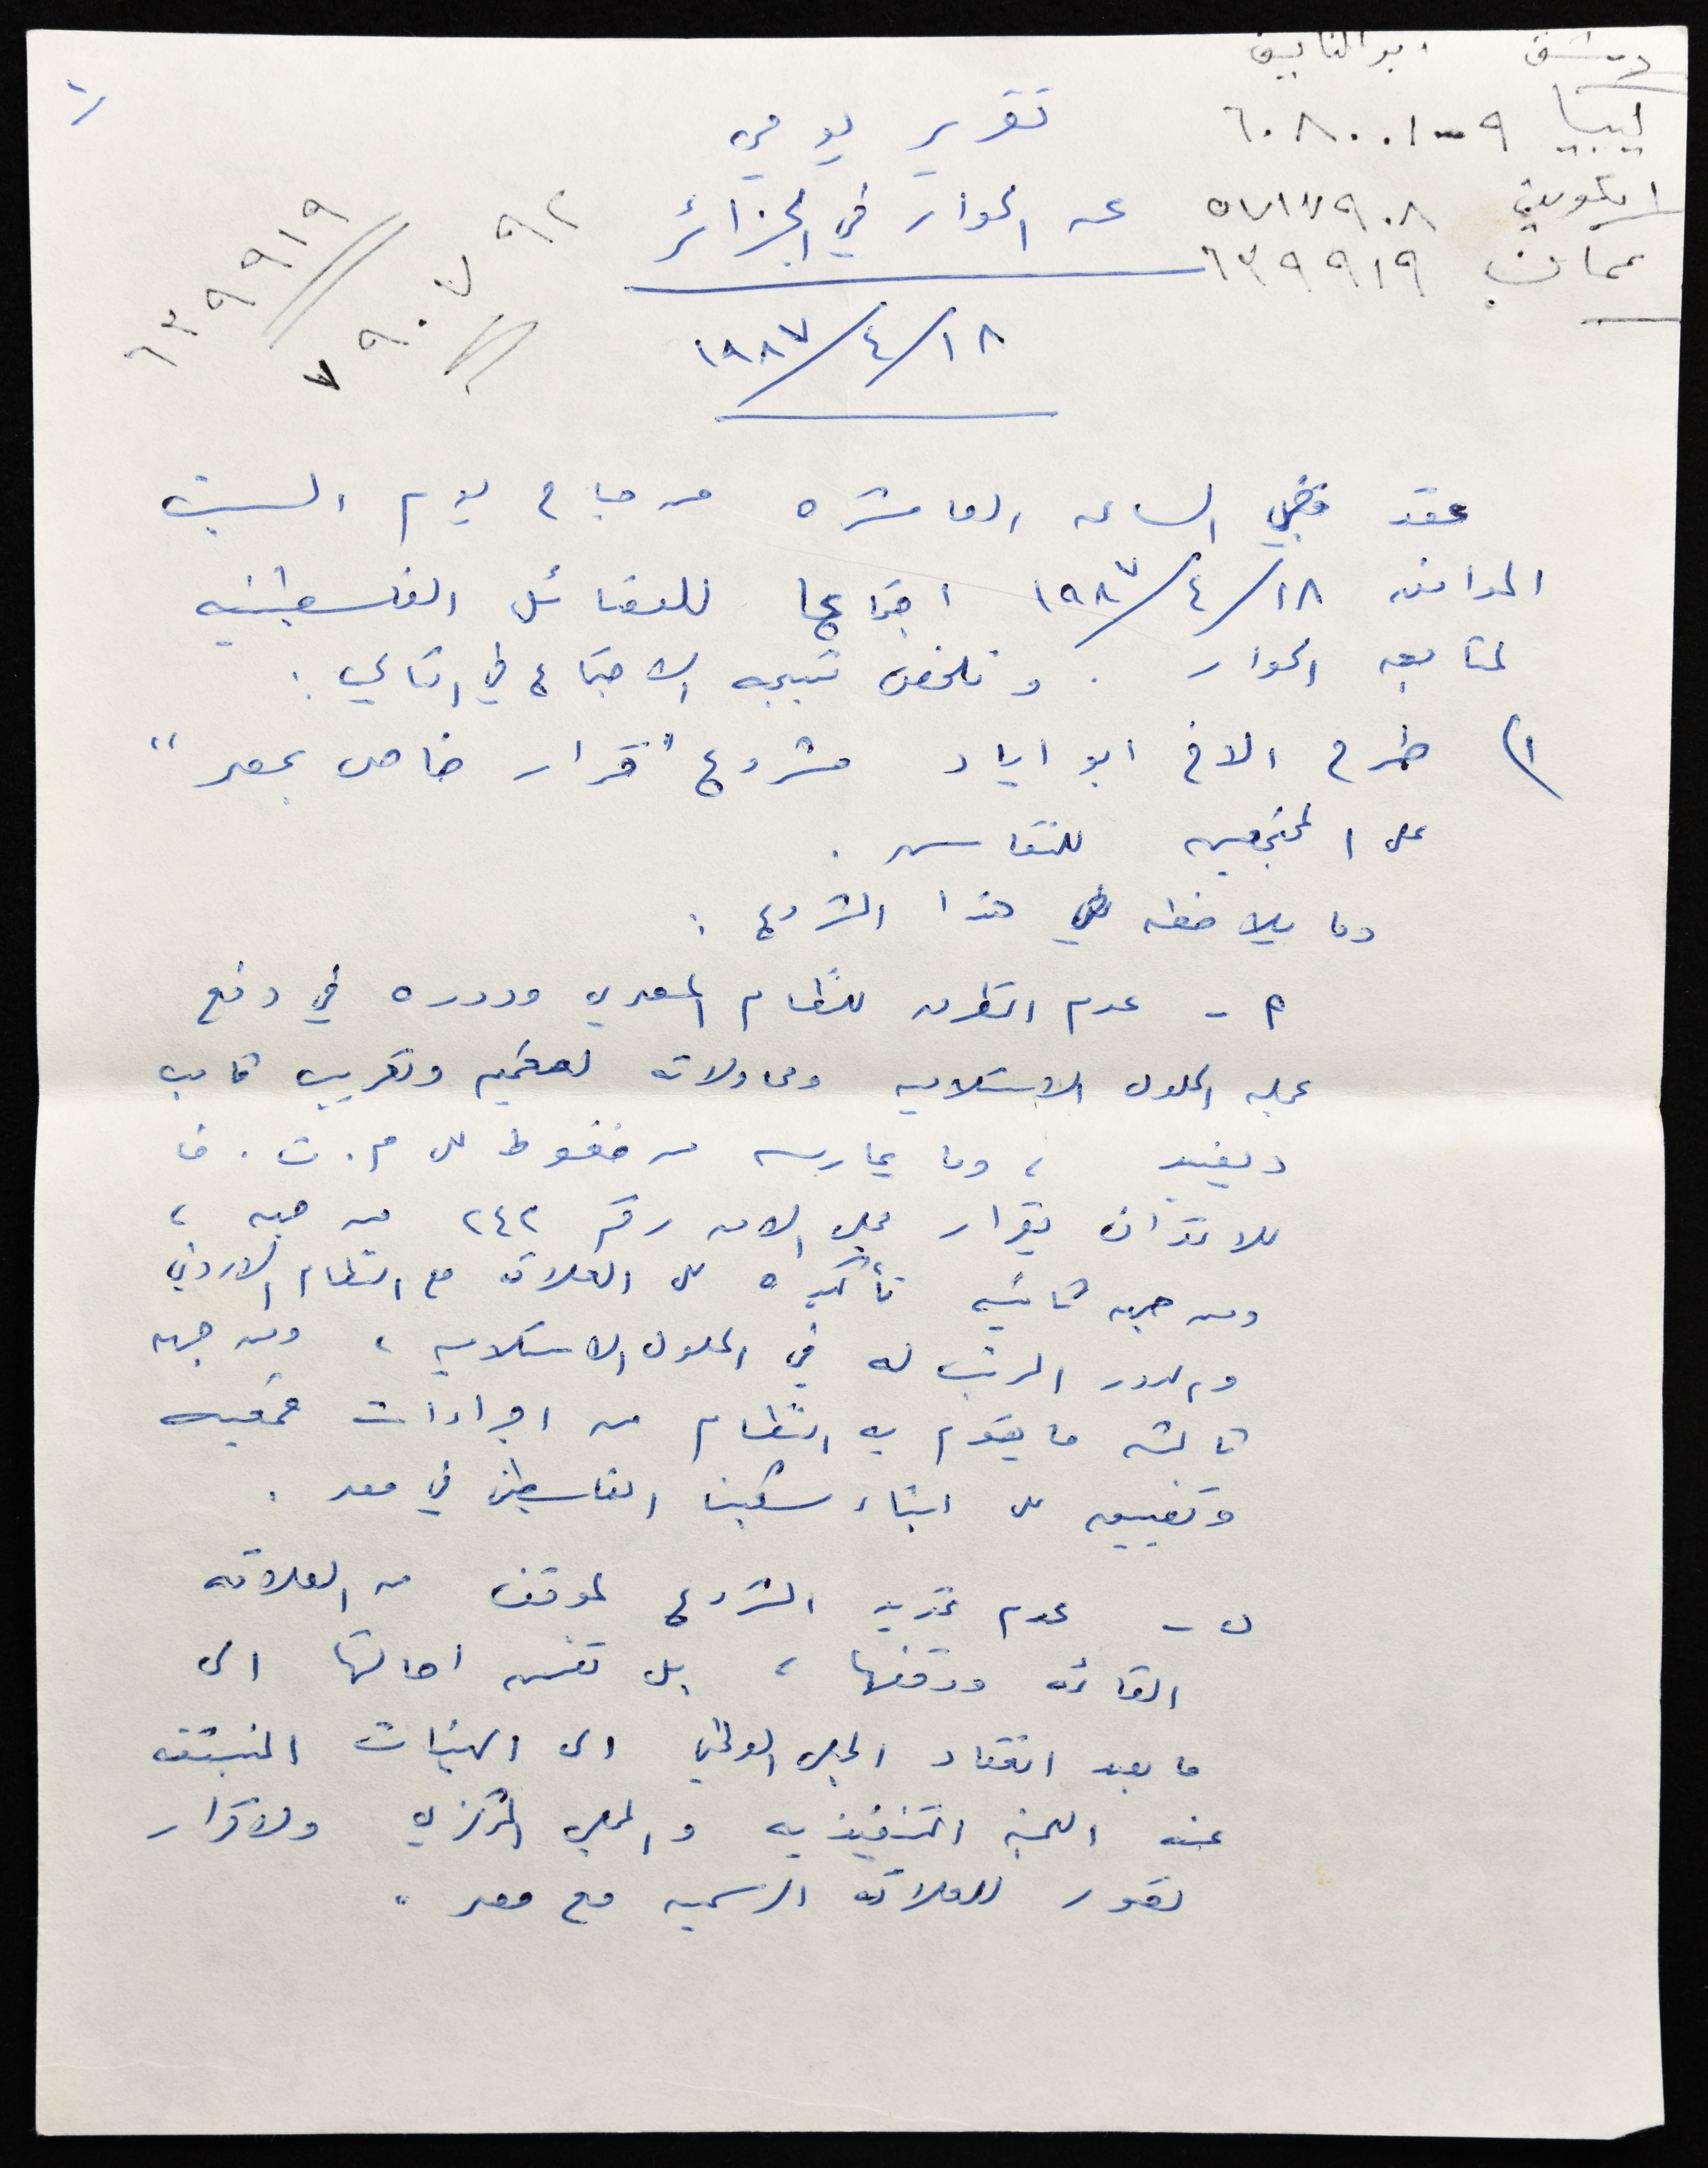 دمشق ابو
ليبيا ٩-٦٠٨٠٠١
الكويت ٥٧١٧٩٠٨
عمان ٦٣٩٩١٩
٦٣٩٩١٩
٧٩٠٧٩٢
تقرير يومي
عن الحوار في الجزائر
١٩٨٧/٤/١٨
عقد في الساعه العاشره من صباح يوم السبت
الموافق ١٩٨٧/٤/١٨ اجتماعا للفصائل الفلسطينيه
لمتابعه الحوار . وتلخصت نتيجه الاجتماع في التالي :
١) طرح الاخ ابو اياد مشروع "قرار خاص بمصر"
على المجتمعين للنقاش .
وما يلاحظ في هذا المشروع :
أ - عدم التطرق للنظام المصري ودوره في دفع
عجله الحلول الاستسلاميه ومحاولاته لتعميم وتعريب كامب
ديفيد ، وما يمارسه من ضغوط على م.ت.ف
للاعتراف بقرار مجلس الامن رقم ٢٤٢ من جهه ،
ومن جهه ثانيه تأكيده على العلاقه مع النظام الاردني
والدور المرتب له في الحلول الاستسلاميه ، ومن جهه
ثالثه ما يقوم به النظام من اجراءات قمعيه
وتضييق على ابناء شعبنا الفلسطيني في مصر .
ب - عدم تحديد المشروع لموقف من العلاقه
القائمه ووقفها ، بل تضمن احالتها الى
ما بعد انعقاد المجلس الوطني الى الهيئات المنبثقه
عنه اللجنه التنفيذيه والمجلس المركزي ولاقرار
تصور للعلاقه الرسميه مع مصر .